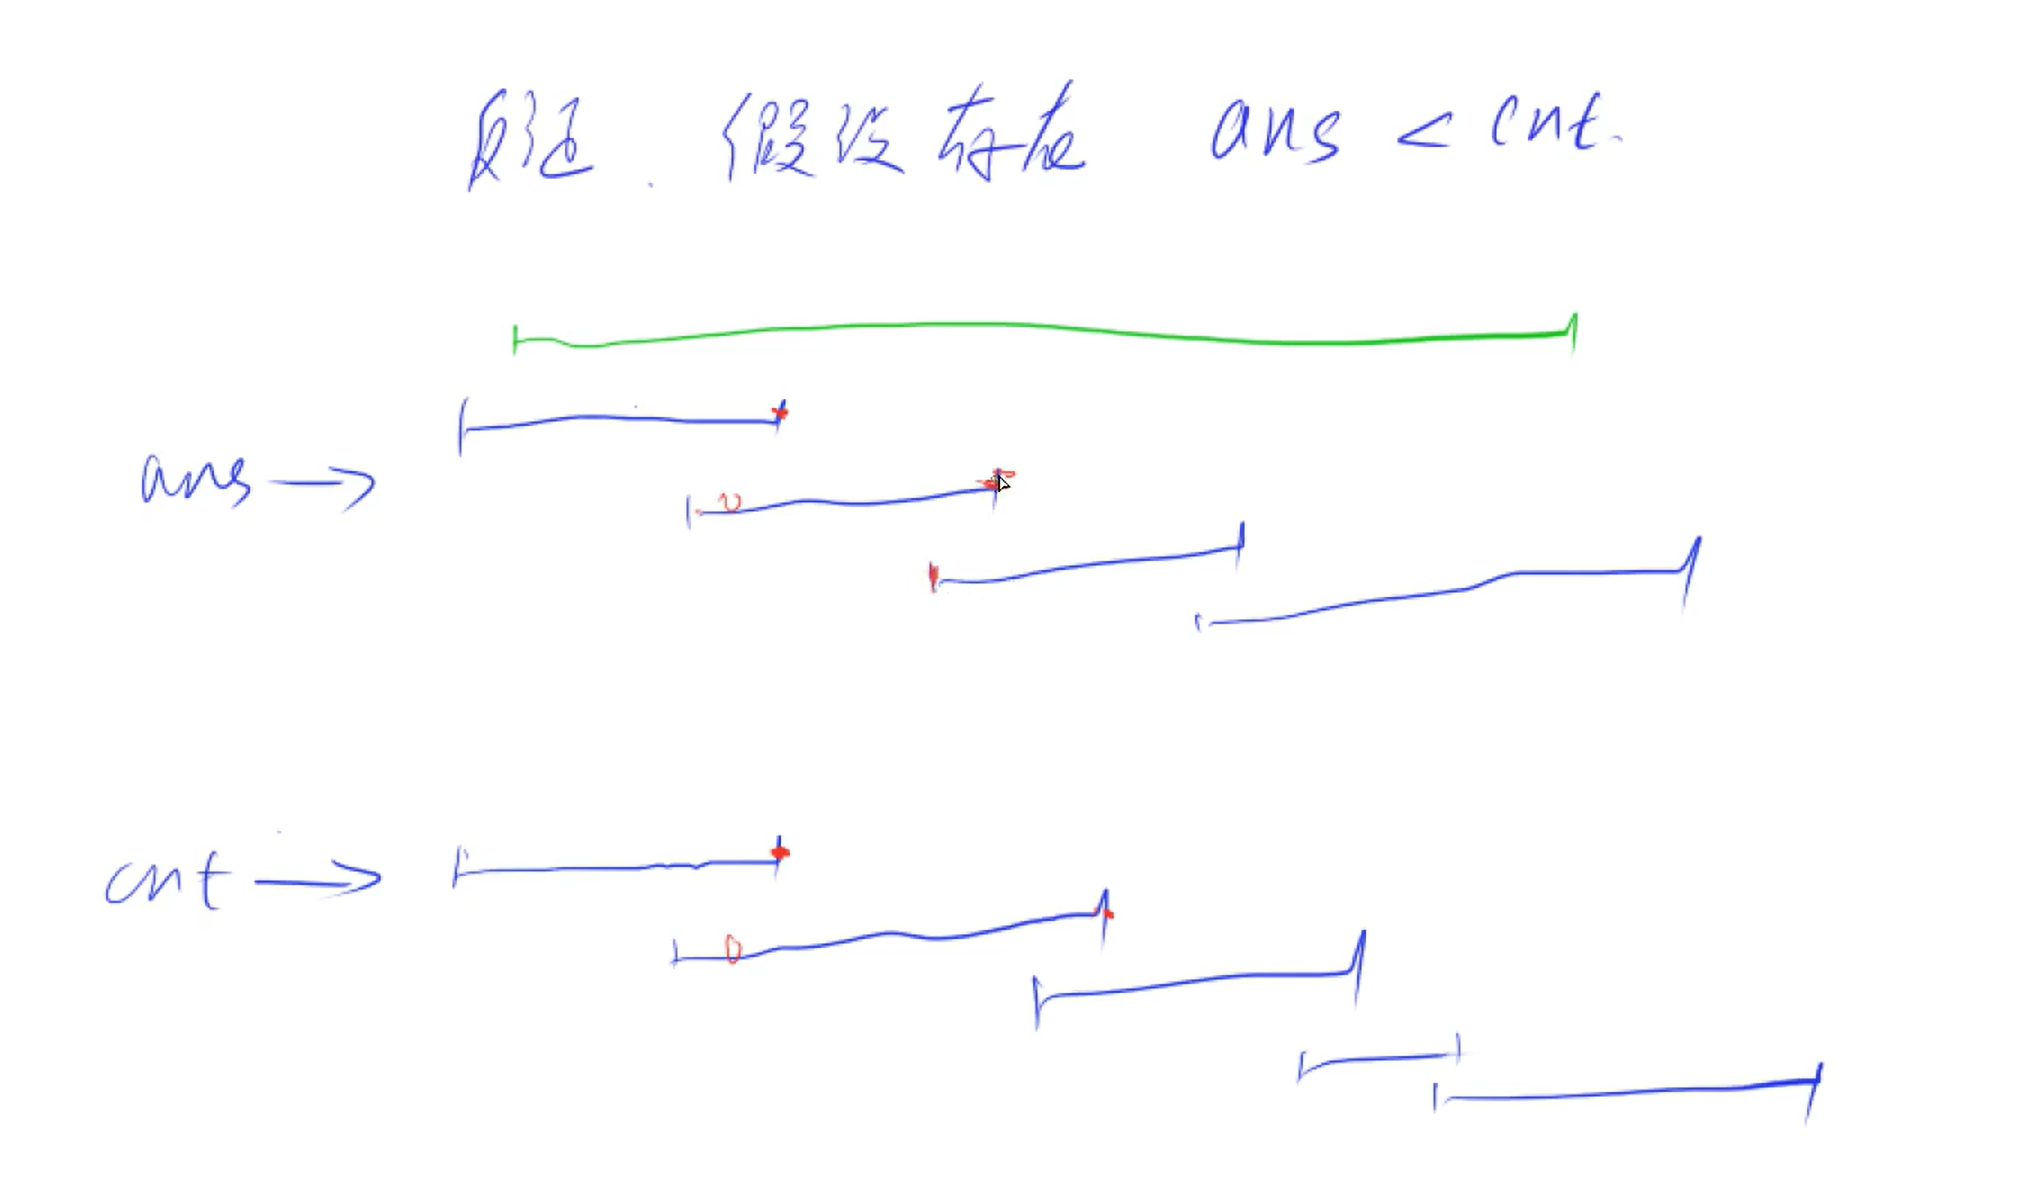 反证. 假设存在 ans < cnt.
ans →
cnt →